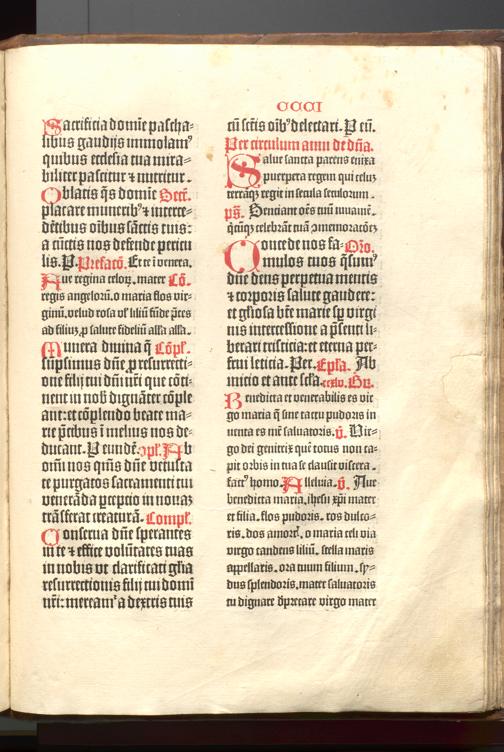 CCCCI
Sacrificia domine pascha-
libus gaudijs immolam⁹
quibus ecclesia tua mira-
biliter pascitur ⁊ nutritur.
Oblatis q̄s domine Secr̄.
placare munerib⁹ ⁊ interce-
dētibus oībus sāctis tuis:
a cūctis nos defende pericu
lis. P. Prefacō. Et te ī venera.
Aue regina celoꝝ, mater Cō.
regis angeloꝝ. o maria flos vir-
ginū, velud rosa vl̓ liliū fūde p̄ces
ad filiū, ꝓ salute fideliū alla alla.
Munera diuina q̄ Cōpl̓.
sūpsimus dn̄e ꝑ resurrecti-
one filij tui dn̄i nr̄i que cōti-
nent in nob̓ dignāter cōple
ant: et cōplendo beate ma-
rie p̄cibus ī melius nos de-
ducant. P eundē. ꝯpl̓. Ab
om̄i nos q̄m̄s dn̄e vetusta
te purgatos sacramenti tui
venerāda ꝑceptio in nouaꝫ
trāsferat creaturā. Compl̓.
Conserua dn̄e sperantes
in te ⁊ effice volūtates tuas
in nobis vt clarificati gl̓ia
resurrectionis filij tui domī
nr̄i: meream̄ a dextris tuis
cū sctīs oīb⁹ delectari. P eū.
Per circulum anni de dn̄a.
Salue sancta parens enixa
puerpera regem qui celuꝫ
terrāqꝫ regit in secula seculorum.
ps̄. Senciant oēs tuū iuuamē.
q̄cūqꝫ celebrāt tuā ꝯmemoracōeꝫ
Concede nos fa- Orō.
mulos tuos q̄sum⁹
dn̄e deus perpetua mentis
⁊ corporis salute gaudere:
et gl̓iosa bt̄e marie sꝑ virgi
nis intercessione a p̄senti li-
berari tristicia: et eterna per-
frui leticia. Per. Epl̓a. Ab
inicio et ante sc̄la. Gr̄.
Benedicta et venerabilis es vir
go maria q̄ sine tactu pudoris in
uenta es mr̄ saluatoris. V̄. Vir-
go dei genitrix quē totus non ca-
pit orbis in tua se clausit viscera.
fact⁹ homo. Alleluia. V̄. Aue
benedicta maria, ihesu xp̄i mater
et filia. flos pudoris. ros dulco-
ris. dos amor̄, o maria celi via
virgo candens liliū. stella maris
appellaris. ora tuum filium. sy-
dus splendoris, mater saluatoris
tu dignare dp̄recare virgo mater